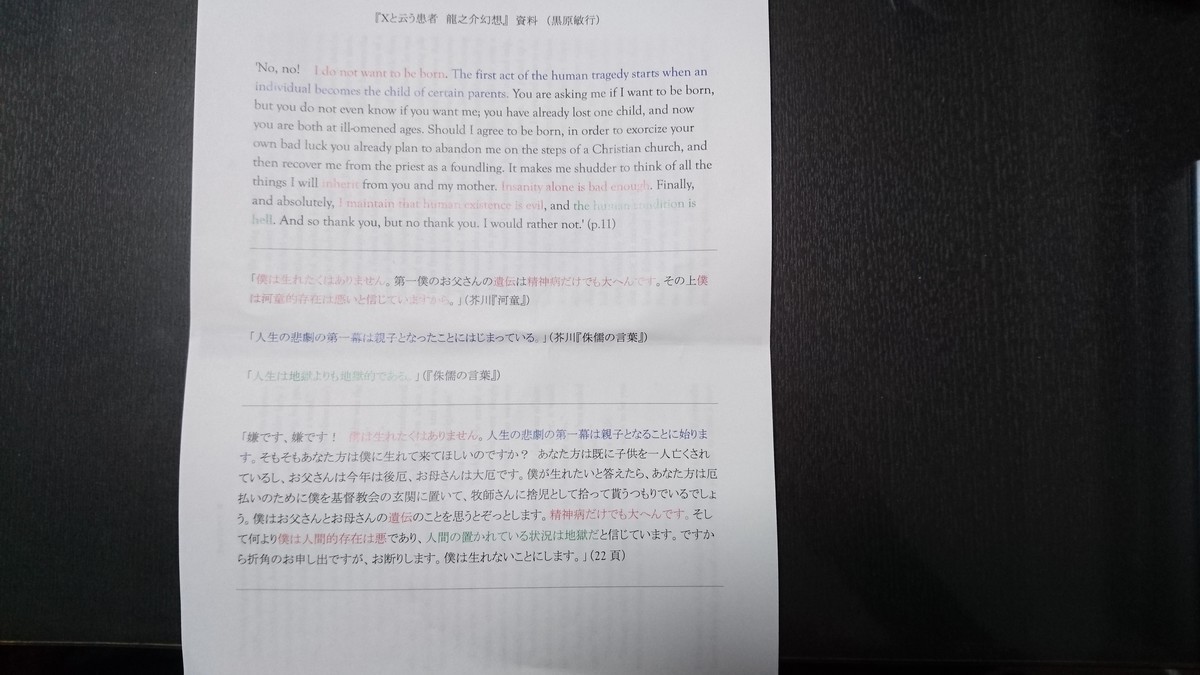 『Xと云う患者 龍之介幻想』 資料 (黒原敏行)
'No, no! I do not want to be born. The first act of the human tragedy starts when an
individual becomes the child of certain parents. You are asking me if I want to be born,
but you do not even know if you want me; you have already lost one child, and now
you are both at ill-omened ages. Should I agree to be born, in order to exorcize your
own bad luck you already plan to abandon me on the steps of a Christian church, and
then recover me from the priest as a foundling. It makes me shudder to think of all the
things I will inherit from you and my mother. Insanity alone is bad enough. Finally,
and absolutely, I maintain that human existence is evil, and the human condition is
hell. And so thank you, but no thank you. I would rather not.' (p.11)
「僕は生れたくはありません。第一僕のお父さんの遺伝は精神病だけでも大へんです。その上僕
は河童的存在は悪いと信じていますから。」(芥川『河童』)
「人生の悲劇の第一幕は親子となったことにはじまっている。」(芥川『侏儒の言葉』)
「人生は地獄よりも地獄的である。」(『侏儒の言葉』)
「嫌です、嫌です! 僕は生れたくはありません。人生の悲劇の第一幕は親子となることに始りま
す。そもそもあなた方は僕に生れて来てほしいのですか? あなた方は既に子供を一人亡くされ
ているし、お父さんは今年は後厄、お母さんは大厄です。僕が生れたいと答えたら、あなた方は厄
払いのために僕を基督教会の玄関に置いて、牧師さんに捨児として拾って貰うつもりでいるでしょ
う。僕はお父さんとお母さんの遺伝のことを思うとぞっとします。精神病だけでも大へんです。そし
て何より僕は人間的存在は悪であり、人間の置かれている状況は地獄だと信じています。ですか
ら折角のお申し出ですが、お断りします。僕は生れないことにします。」(22 頁)